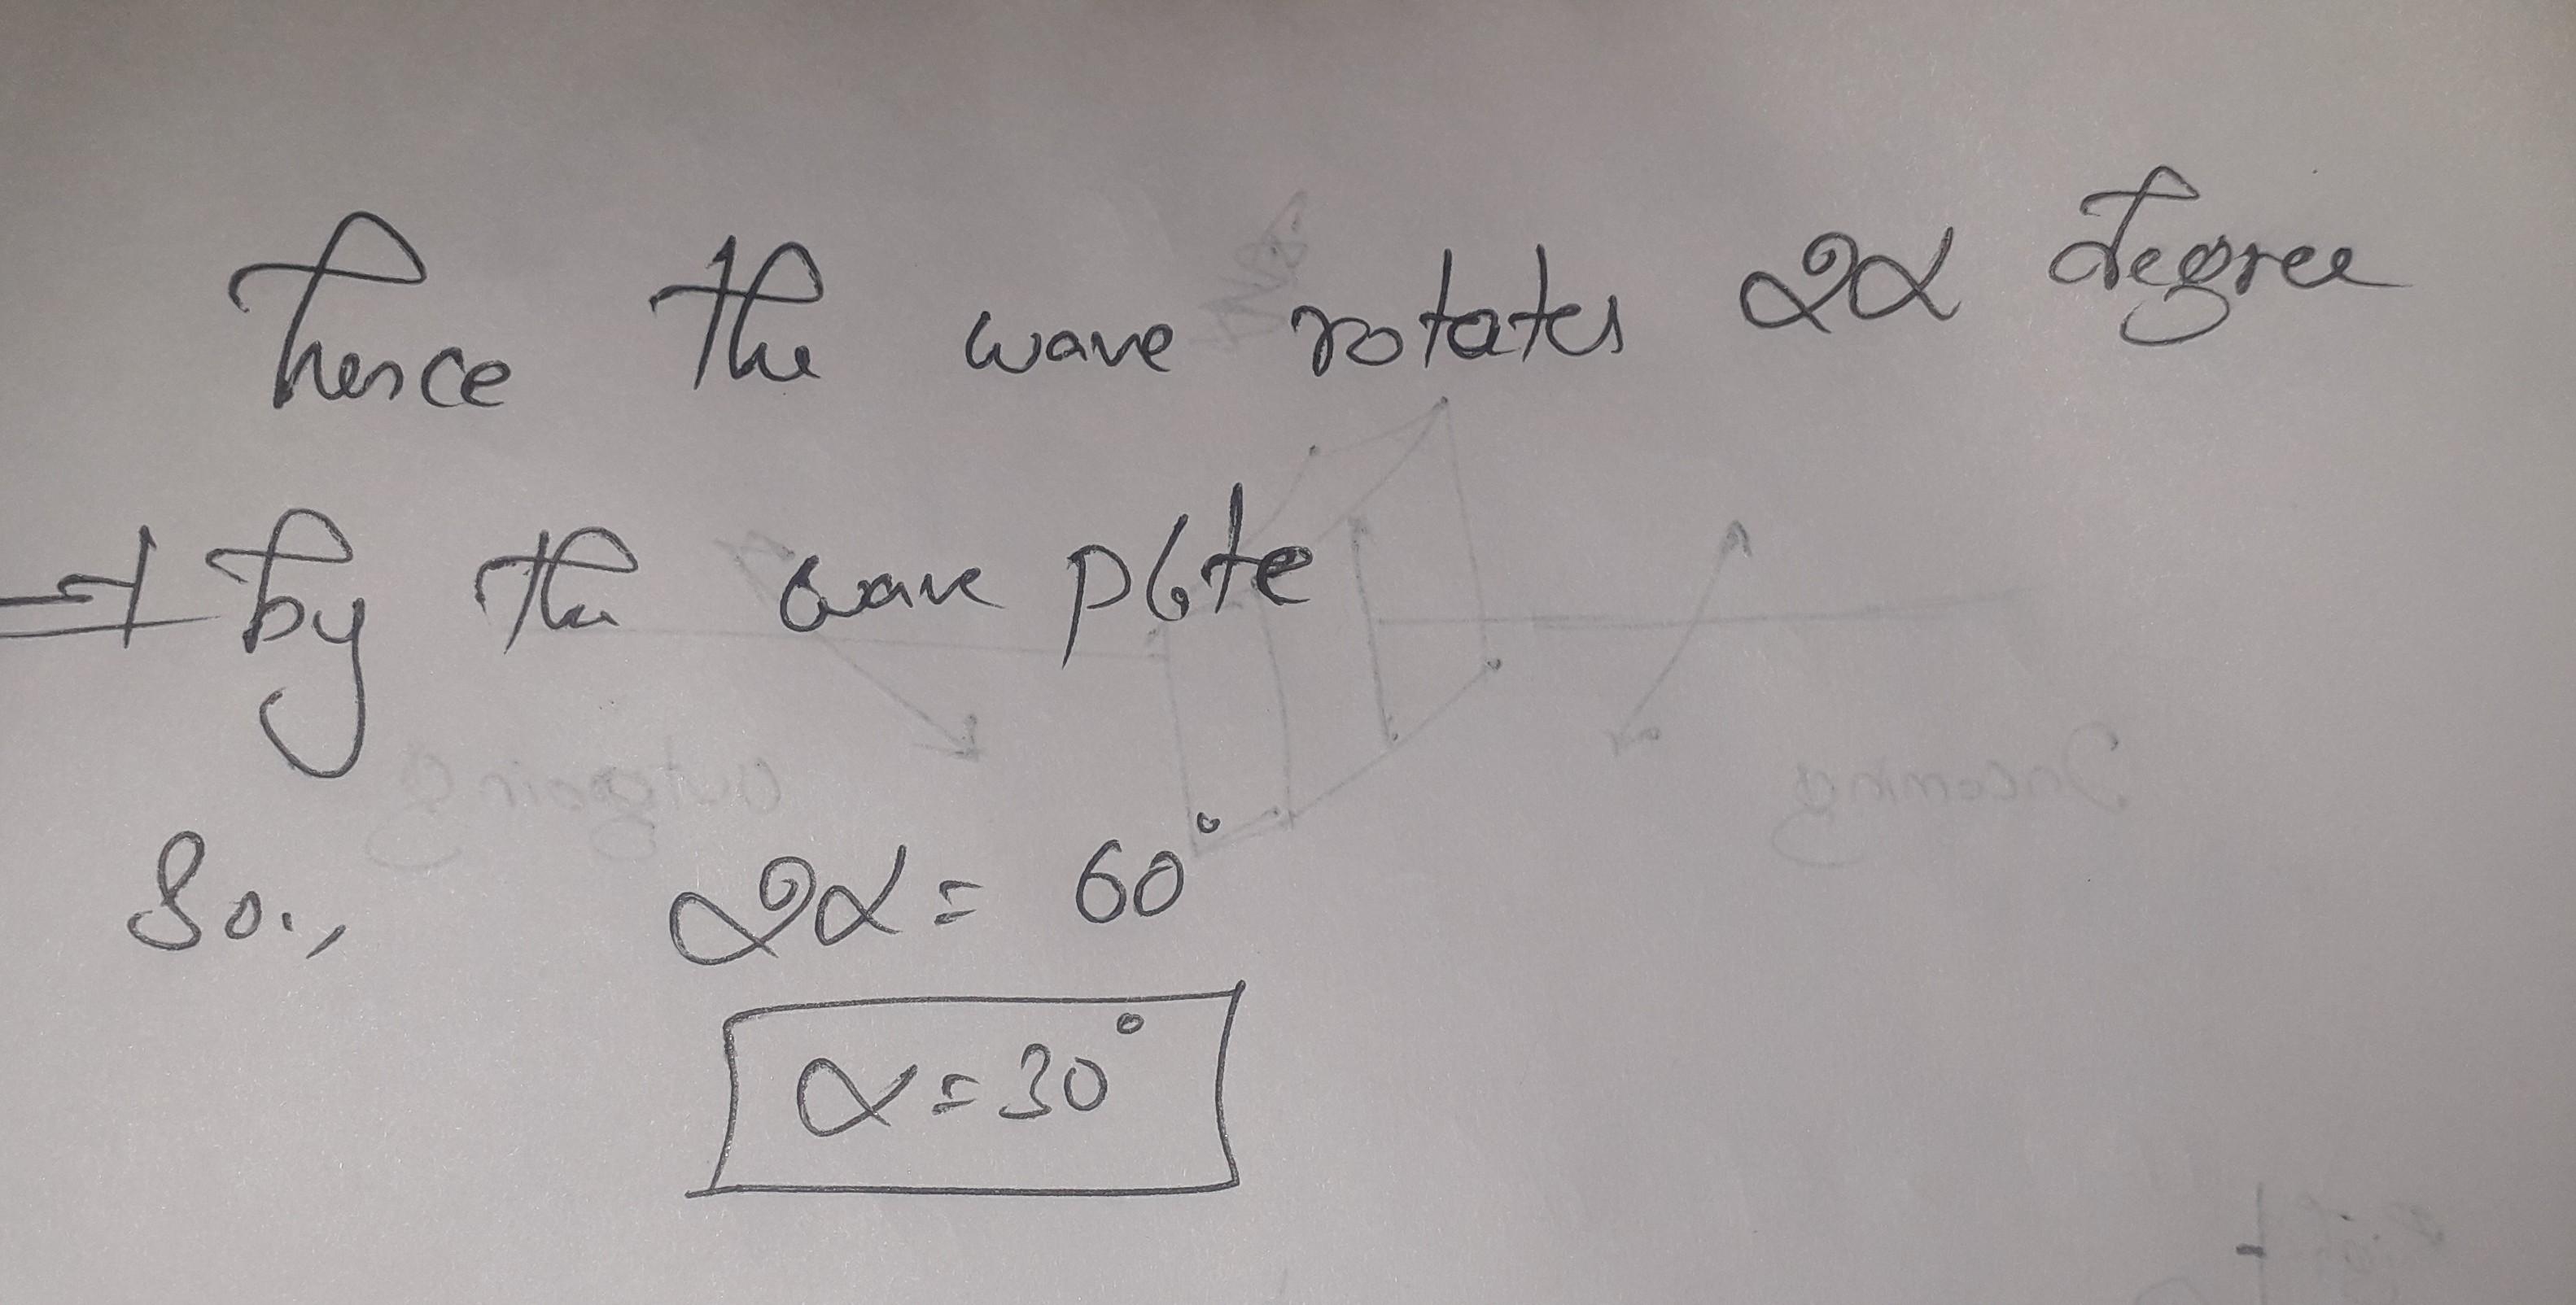 hence the wave rotates 2α degree
by the wave plate
So., 2α = 60°
α = 30°